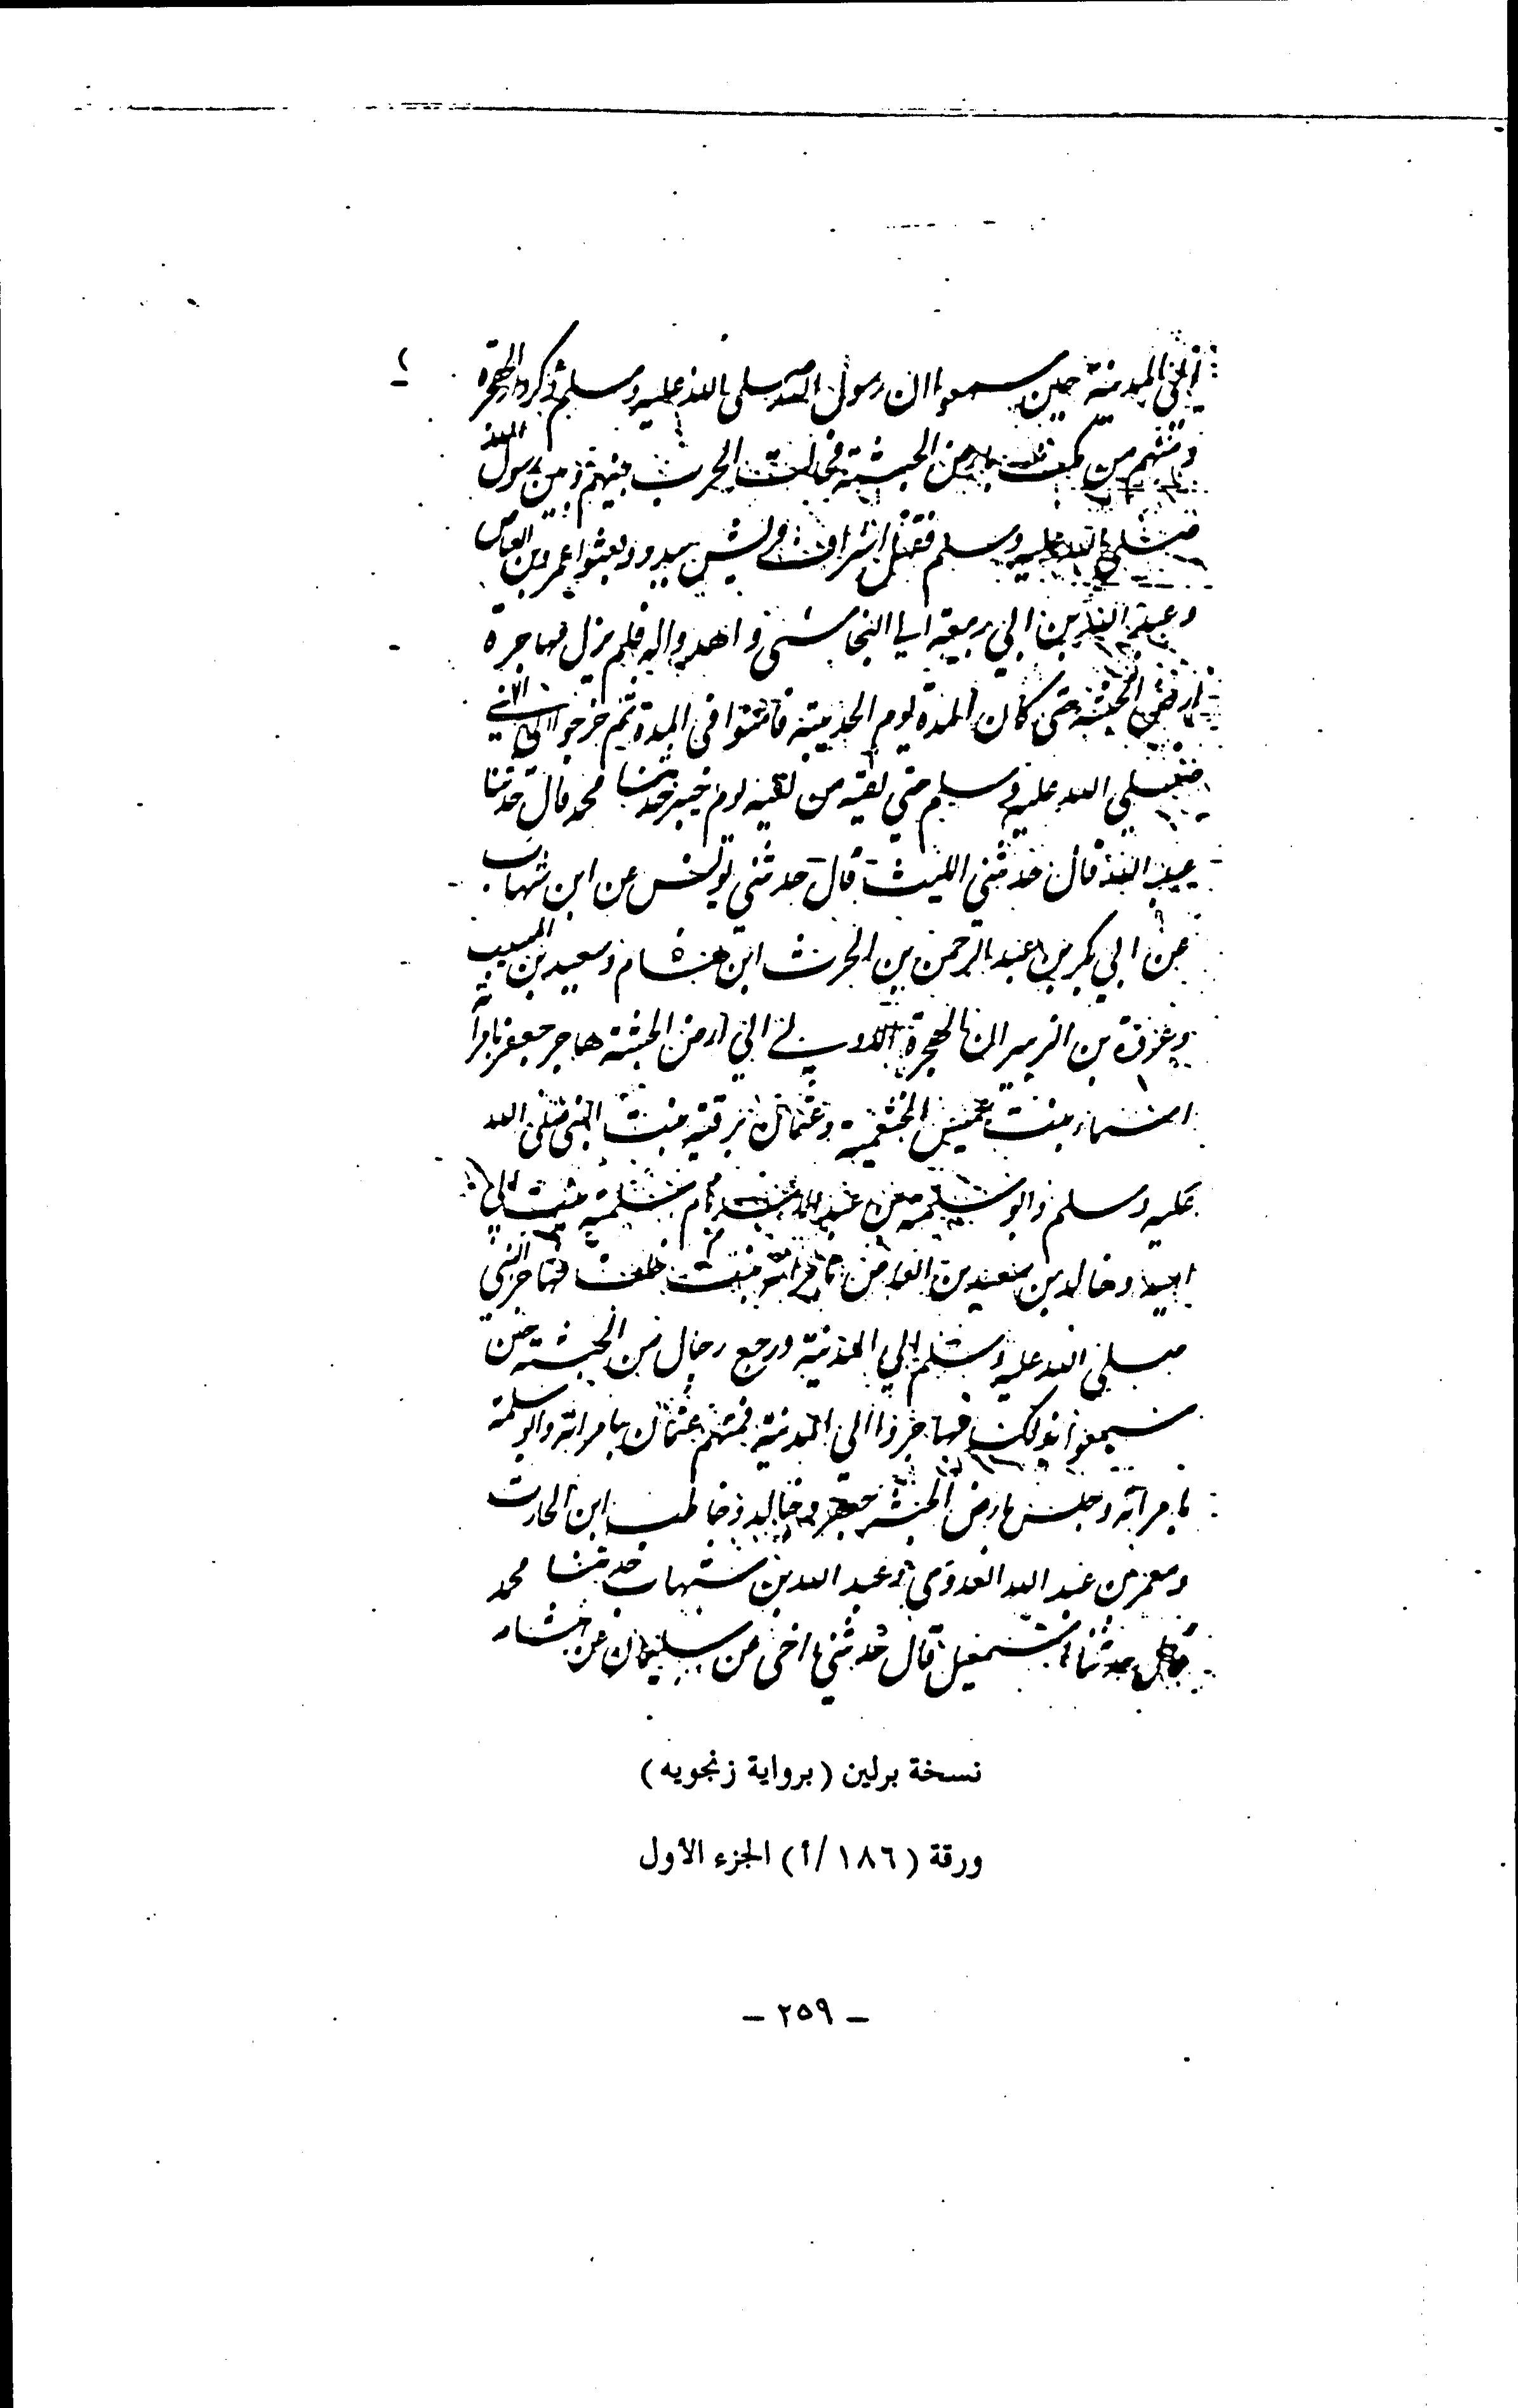 الي المدينة حين سمعوا ان رسول الله صلى الله عليه وسلم ذكر دار الهجرة
ومنهم من مكث بارض الحبشة فحالت الحرب بينهم وبين رسول الله
صلى الله عليه وسلم فقتل اشراف قريش ببدر وبعثوا عمرو بن العاص
وعبد الله بن ابي ربيعة الى النجاشي واهدوا اليه فلم يزل مهاجرة
ارض الحبشة حتى كان المدة يوم الحديبية فامنوا في المدة ثم خرجوا الى النبي
صلى الله عليه وسلم حتي لقيه من لقيه يوم خيبر حدثنا محمد قال حدثنا
عبد الله قال حدثني الليث قال حدثني يونس عن ابن شهاب
عن ابي بكر بن عبد الرحمن بن الحرث ابن هشام وسعيد بن المسيب
وعروة بن الزبير ان الهجرة الاولى الي ارض الحبشة هاجر جعفر بامرأته
اسماء بنت عميس الخثعمية وعثمان برقية بنت النبي صلى الله
عليه وسلم وابو سلمة بن عبد الاسد بام سلمة بنت ابي
امية وخالد بن سعيد بن العاص بامرأته بنت خلف فهاجر النبي
صلى الله عليه وسلم الي المدينة ورجع رجال من الحبشة حين
سمعوا بذلك فهاجروا الى المدينة فمنهم عثمان بامراته وابو سلمة
بامرأته وحبس بارض الحبشة جعفر وخالد وحاطب ابن الحارث
ومعمر بن عبد الله العدوي وعبد الله بن شهاب حدثنا محمد
قال حدثنا اسمعيل قال حدثني اخي عن سليمان عن
نسخة برلين (برواية زنجويه)
ورقة (١٨٦/أ) الجزء الأول
– ٢٥٩ –